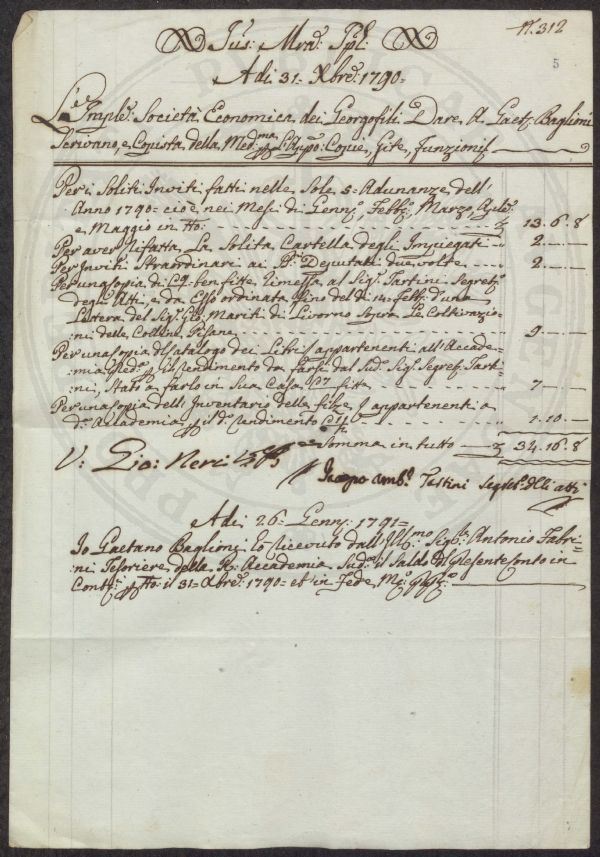 N. 312
5
Jus: Mra: Ppl:
A dì 31: Xbre: 1790=
L'Imple: Società Economica dei Georgofili Dare A. Gaet: Baglioni
Scrivano, e Copista della Med:ma p l'Appo: Copie, Gite, funzioni
Per i Soliti Inviti fatti nelle Sole 5: Adunanze dell'
Anno 1790= cioè nei Mesi di Genn:, Febb:, Marzo, Aple:
e Maggio in tto: 13. 6. 8
Per aver Rifatta La Solita Cartella degli Impiegati 2
Per Inviti Straordinari ai SS: Deputati due volte 2
Per una Copia di ben fitte, rimessa al Sig: Tartini Segret:
degli Atti, e da Esso ordinata fino del dì 14= Febb: d'una
Lettera del Sig: Mariti di Livorno Sopra La Coltivazio=
:ni delle Colline Pisane 9
Per una Copia del Catalogo dei Libri appartenenti all'Accade=
:mia Med: p il rendimento da farsi dal Sud: Sig: Segret: Tarti=
:ni, Stato a farlo in Sua Casa fitte 7
Per una Copia dell'Inventario delle filze appartenenti a
d: Accademia p il d: rendimento 1. 10
Somma in tutto 34. 16. 8
V: Gio: Neri
Jacopo Amb: Tartini Segret: degli atti
A dì 26: Genn: 1791=
Io Gaetano Baglioni ho ricevuto dall'Ill:mo Sig: Antonio Fabri=
:ni Tesoriere della R: Accademia Sud: il Saldo del presente Conto in
Cont: p tto: il 31= Xbre: 1790= et in fede M: